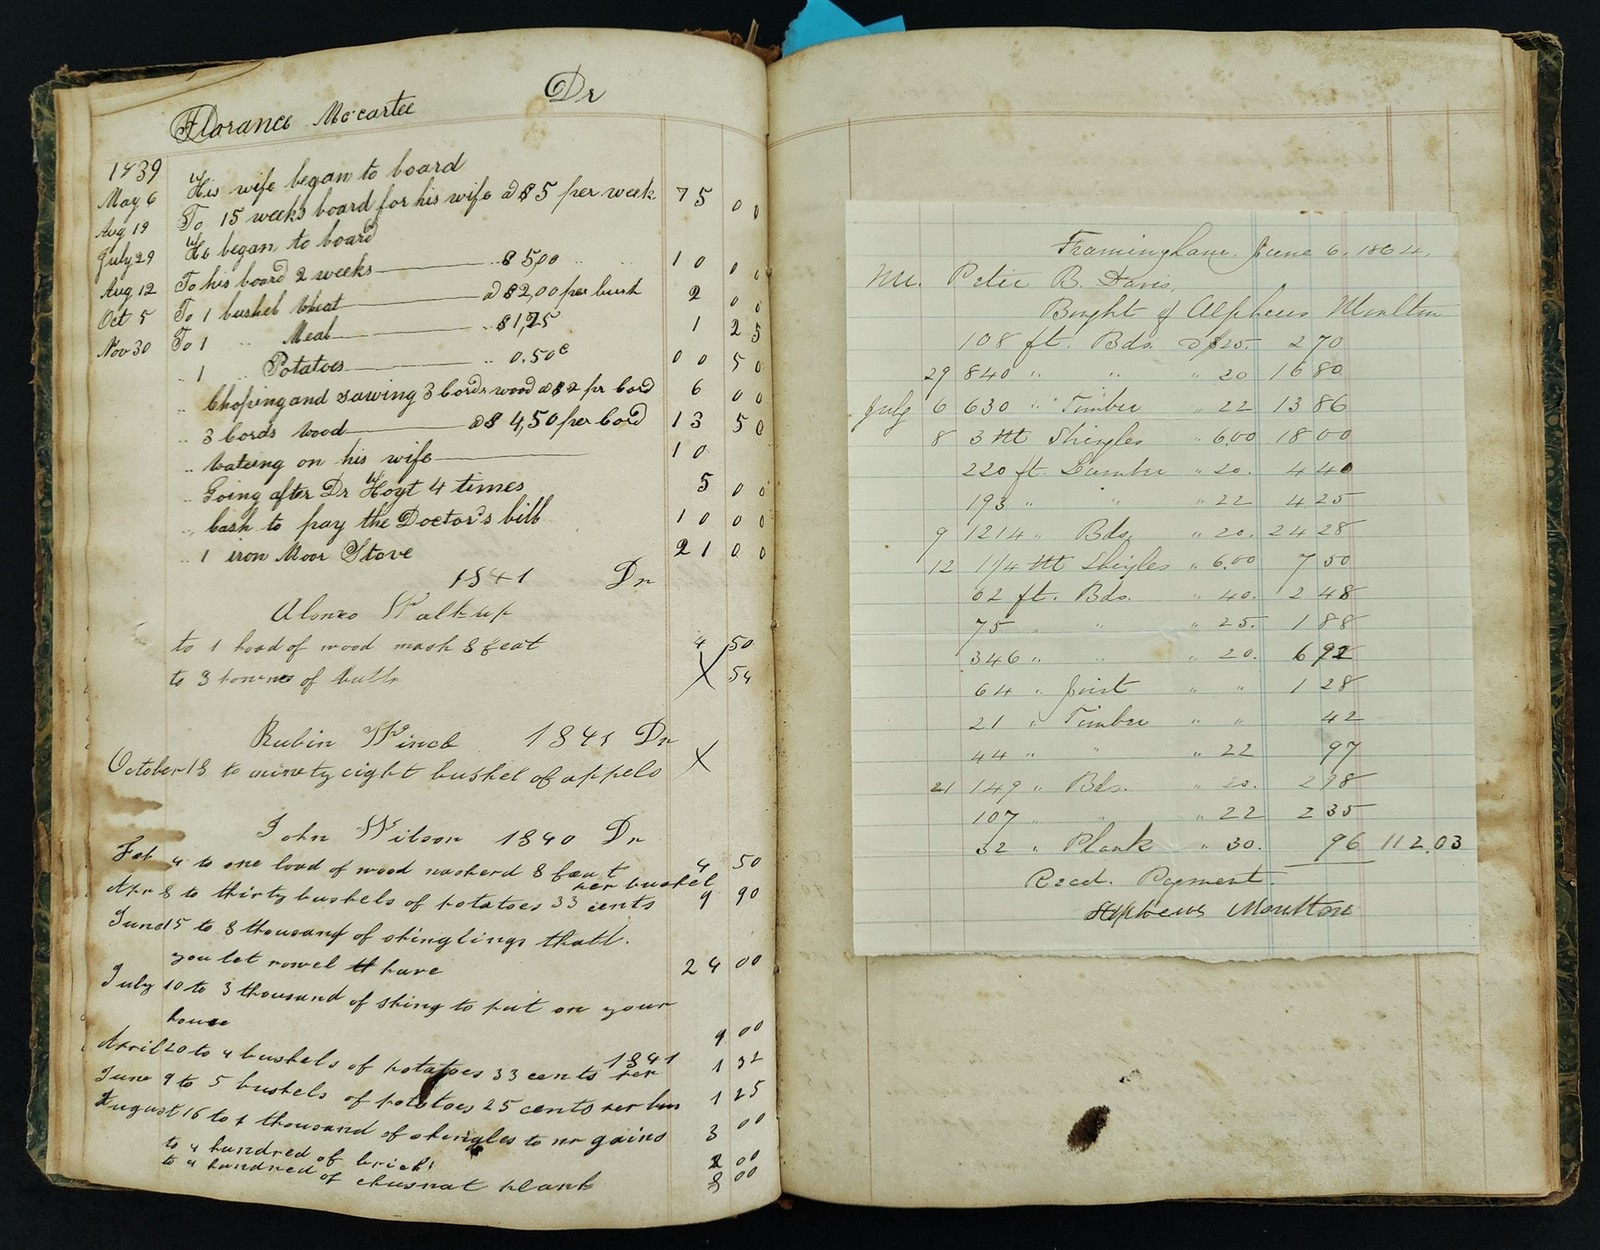 Dr
Florance Mccartee
1839
May 6 His wife began to board
Aug 19 To 15 weeks board for his wife a $5 per week 75 00
July 29 He began to board
Aug 12 To his board 2 weeks " $5,00 10 00
Oct 5 To 1 bushel Wheat a $2,00 per bush 2 00
Nov 30 To 1 " Meal " $1,25 1 25
" 1 Potatoes " 0.50c 00 50
" Choping and sawing 3 Cords wood a $2 pr Cord 6 00
" 3 Cords Wood a $4,50 per Cord 13 50
" Wateing on his wife 10
" Going after Dr Hoyt 4 times 5 00
" Cash to pay the Doctor's bill 10 00
" 1 iron Moor Stove 21 00
1841 Dr
Alonzo Walkup
to 1 load of wood mash 8 feat 4 50
to 3 of 54
Rubin Winch 1841 Dr
October 18 to ninety eight bushel of appels
John Wilson 1840 Dr
Feb 4 to one load of wood masherd 8 feat 4 50
per bushel
Apr 8 to thirty bushels of potatoes 33 cents 9 90
June 15 to 8 thousand of shinglings that
you let have 24 00
July 10 to 3 thousand of shing to put on your
house 9 00
1841
April 20 to 4 bushels of potatoes 33 cents per 1 32
June 9 to 5 bushels of potatoes 25 cents per bus 1 25
August 16 to 1 thousand of shingles to mr gains 3 00
to 4 hundred of brick 2 00
to 4 hundred of chesnat plank 8 00
Framingham, June 6, 1864.
Mr. Peter B. Davis,
Bought of Alpheus Moulton
108 ft. Bds. @ $25. 2 70
29 840 " " " 20 16 80
July 6 630 " Timber " 22 13 86
8 3 M Shingles " 6.00 18 00
220 ft. Lumber " 20. 4 40
193 " " " 22 4 25
9 1214 " Bds. " 20. 24 28
12 1 1/4 M Shigles " 6.00 7 50
62 ft. Bds. " 40. 2 48
75 " " " 25. 1 88
346 " " " 20. 6 92
64 " Joist " " 1 28
21 " Timber " " 42
44 " " " 22 97
21 149 " Bds. " 20. 2 98
107 " " " 22 2 35
32 " Plank " 30. 96 112.03
Recd. Payment.
Alpheus Moulton